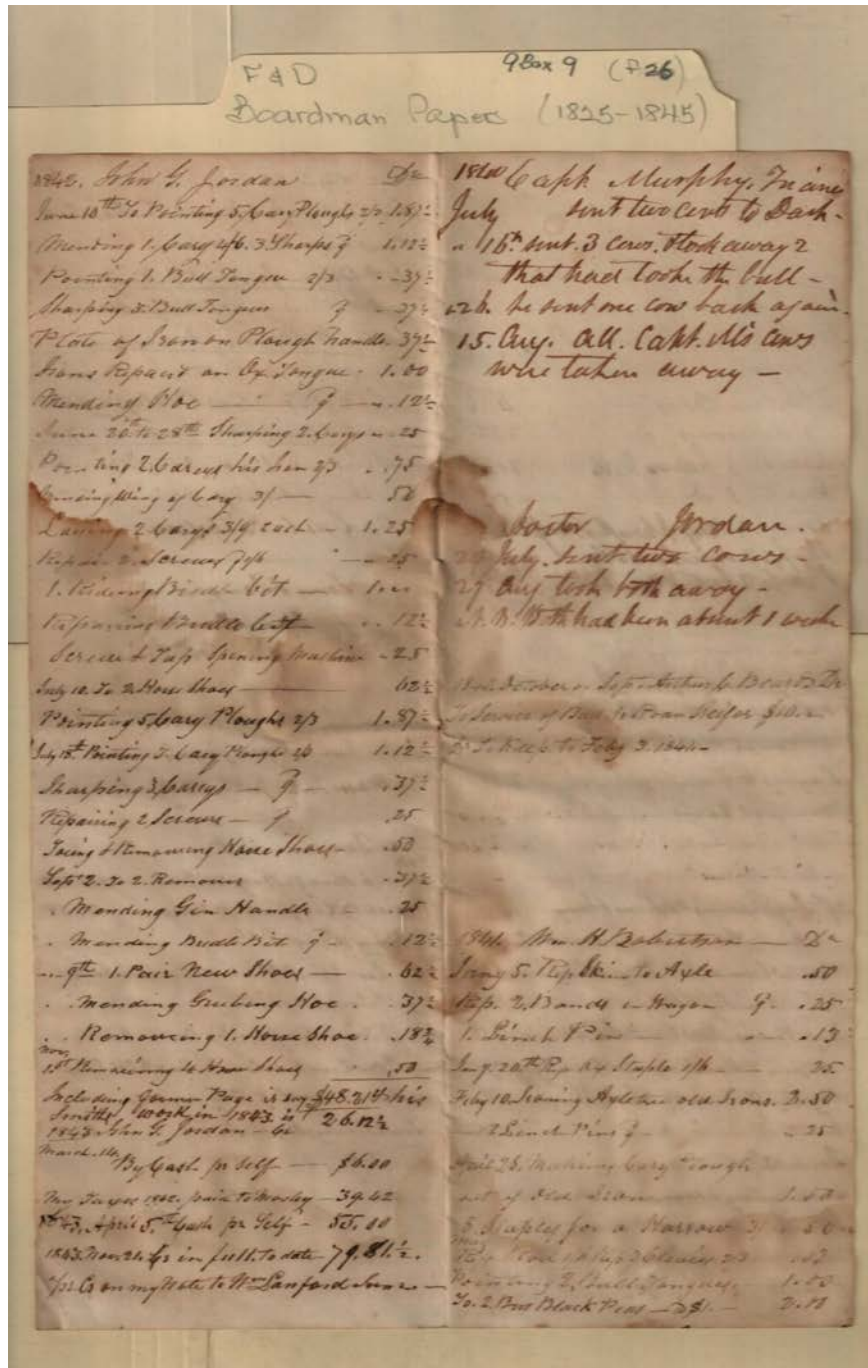 F & D Box 9 (F26)
Boardman Papers (1825-1845)
John G. Jordan Dr
June 10th To Pointing 5 Cary Ploughs 2/3 1.87½
Mending 1. Cary 2/6. 3 Sharps 1.12½
Pointing 1. Bull Tongue 2/3 .37½
Sharping 3. Bull Tongues .37½
Plate of Iron on Plough handle .37½
Irons Repairs on Ox Tongue 1.00
Mending Hoe .12½
June 20th to 28th Sharping 2. Carys .25
Pointing 2. Careys his 2/3 .75
Wing of Cary 3/ .50
Laying 2 Carys 3/9 each 1.25
Repair 2. Screws .25
1. Riding Bridle bit
Repairing Bridle bit .12½
Screw & Tap Spinning Machine .25
July 12. To 2. Horse Shoes 62½
Pointing 5. Cary Ploughs 2/3 1.87½
July 18th Pointing 3. Cary Ploughs 1.12½
Sharping 3. Careys .37½
Repairing 2 Screws .25
Toeing & Removing Horse Shoes .50
Sept 2. To 2. Removes .37½
Mending Gin Handle .25
Mending Bridle Bit .12½
9th 1. Pair New Shoes .62½
Mending Grubing Hoe .37½
Removing 1. Horse Shoe .18¾
Nov. 15th Removing 4 Horse Shoes .50
Including former Page is say $48.21 his
Smiths work in 1843 is 26.12½
1843. John G. Jordan Cr
March
By Cash pr Self $6.00
My Taxes 1842. paid to Mosby 39.42
April 5th Cash pr Self 55.00
1843. Nov. 21. Cr in full to date 79.81½
Cr on my Note to Wm Lanford
Capt Murphy.
July sent two cows to Dark
" 16th sent. 3 cows. & took away 2
that had took the bull
" 26. he sent one cow back again.
15. Aug. All. Capt. M's cows
were taken away
Doctor Jordan.
July. sent two cows
29 Aug took both away
N. B. Both had been about 1 week
October or Sept Arthur C. Beard Dr
To Service of Bull pr Roan Heifer $10.
Do To Keep to Feby 3. 1844
1844. Wm. H. Robertson Dr
Jany 5. Rep. Skein to Axle .50
Rep. 2. Bands on Wagon .25
1. Linch Pin .13
Jany. 20th Rep Ox Staple .25
Feby 10. Ironing Axletree old Irons. 2.50
2 Linch Pins .25
April 25. Making Cary Plough
out of Old Iron 1.50
5 Staples for a Harrow
Pointing 2. Bull Tongues 1.00
To. 2 Bus Black Peas $1. 2.00